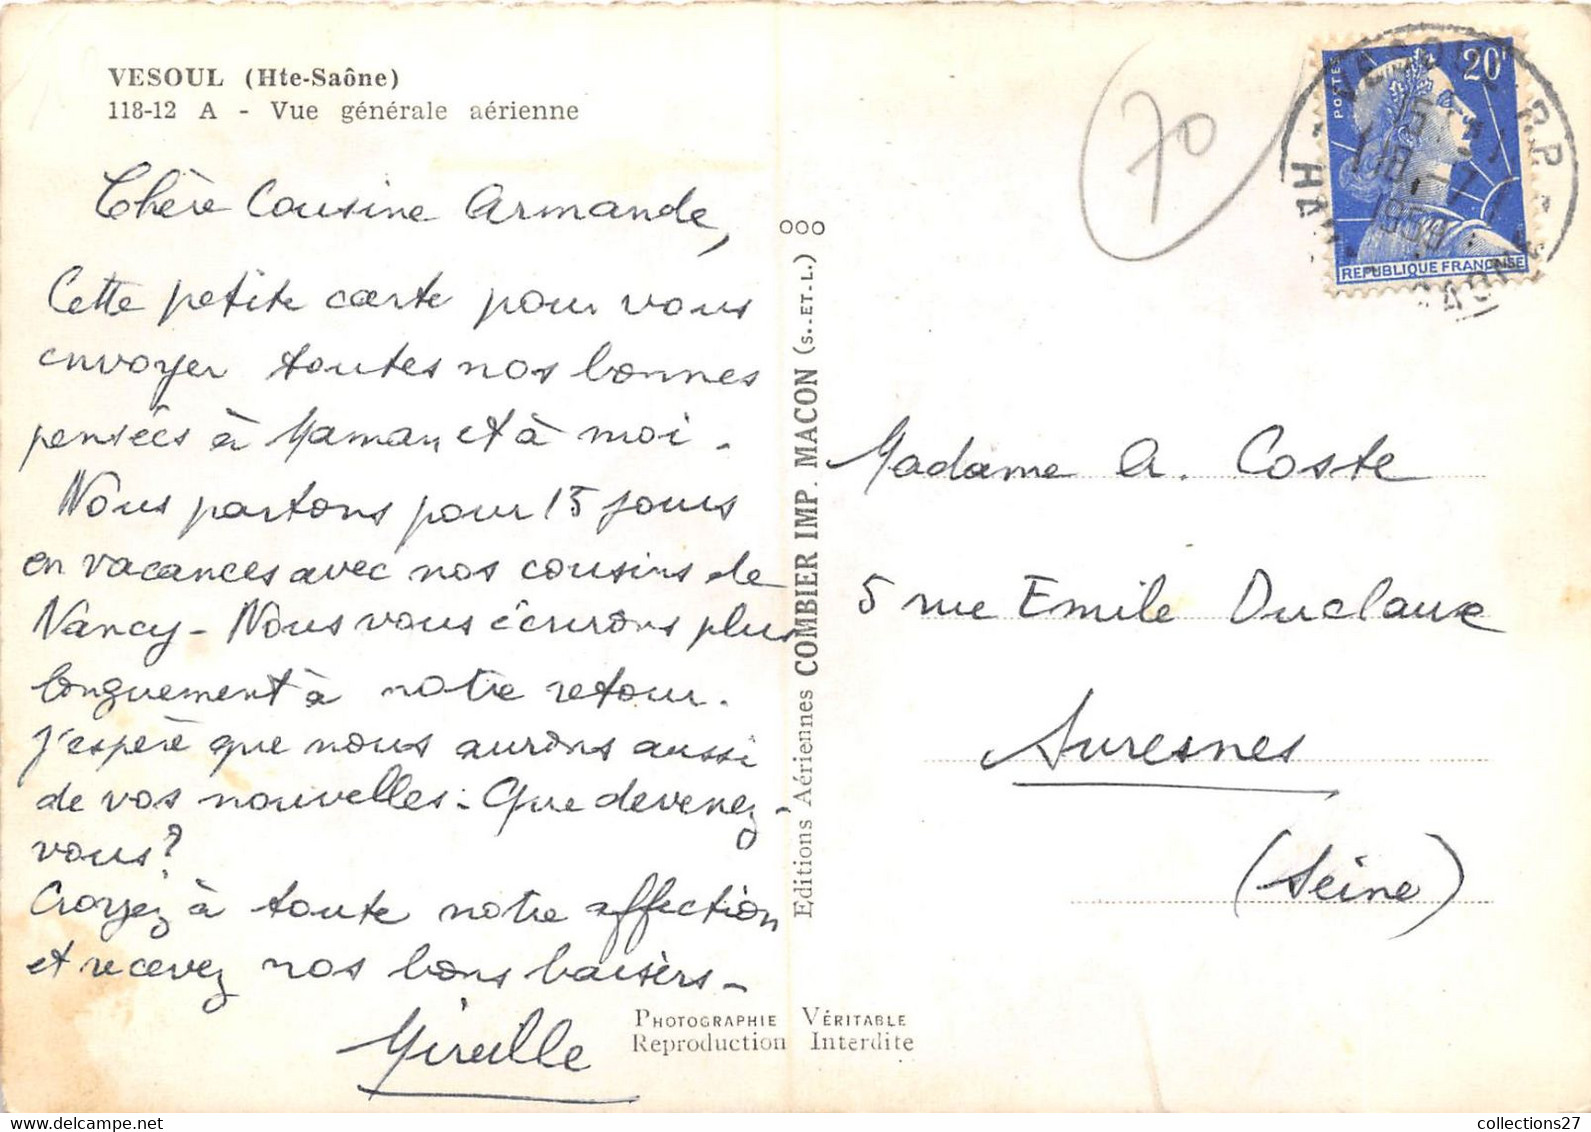 VESOUL (Hte-Saône)
118-12 A - Vue générale aérienne
Chère Cousine Armande,
Cette petite carte pour vous
envoyer toutes nos bonnes
pensées à Maman et à moi -
Nous partons pour 15 jours
en vacances avec nos cousins de
Nancy - Nous vous écrirons plus
longuement à notre retour.
J'espère que nous aurons aussi
de vos nouvelles - Que devenez-
vous?
Croyez à toute notre affection
et recevez nos bons baisers -
Mireille
PHOTOGRAPHIE VÉRITABLE
Reproduction Interdite
Editions Aériennes COMBIER IMP. MACON (S. ET L.)
ooo
70
POSTES
20F
REPUBLIQUE FRANÇAISE
VESOUL R.P.
18 - 7
Madame A. Coste
5 rue Emile Duclaux
Suresnes
(Seine)
collections27